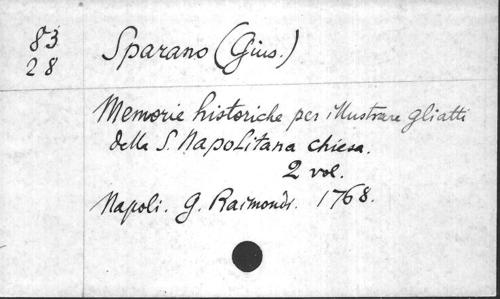 83
28
Sparano (Gius.)
Memorie historiche per illustrare gli atti
della S. Napolitana chiesa.
2 vol.
Napoli. G. Raimondi. 1768.